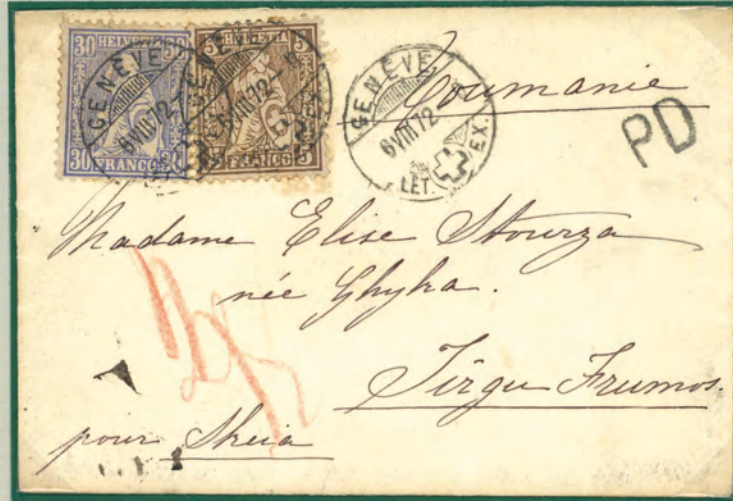 30 HELVETIA 30
FRANCO
30 30
5 HELVETIA 5
FRANCO
5 5
GENÈVE
6 VIII 72
GENÈVE
6 VIII 72
LET.
GENÈVE
6 VIII 72
LET. EX.
Roumanie
PD
Madame Elise Stourza
née Ghyka.
Tîrgu Frumos.
pour Skeia